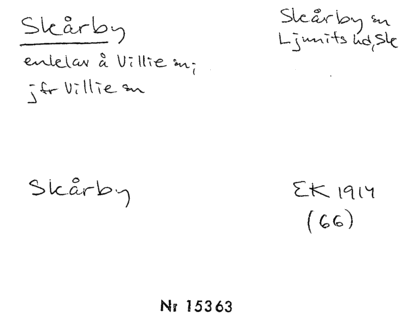 Skårby
Skårby sn
Ljunits hd, Sk
enklav å Villie sn;
jfr Villie sn
Skårby
EK 1914
(66)
Nr 15363